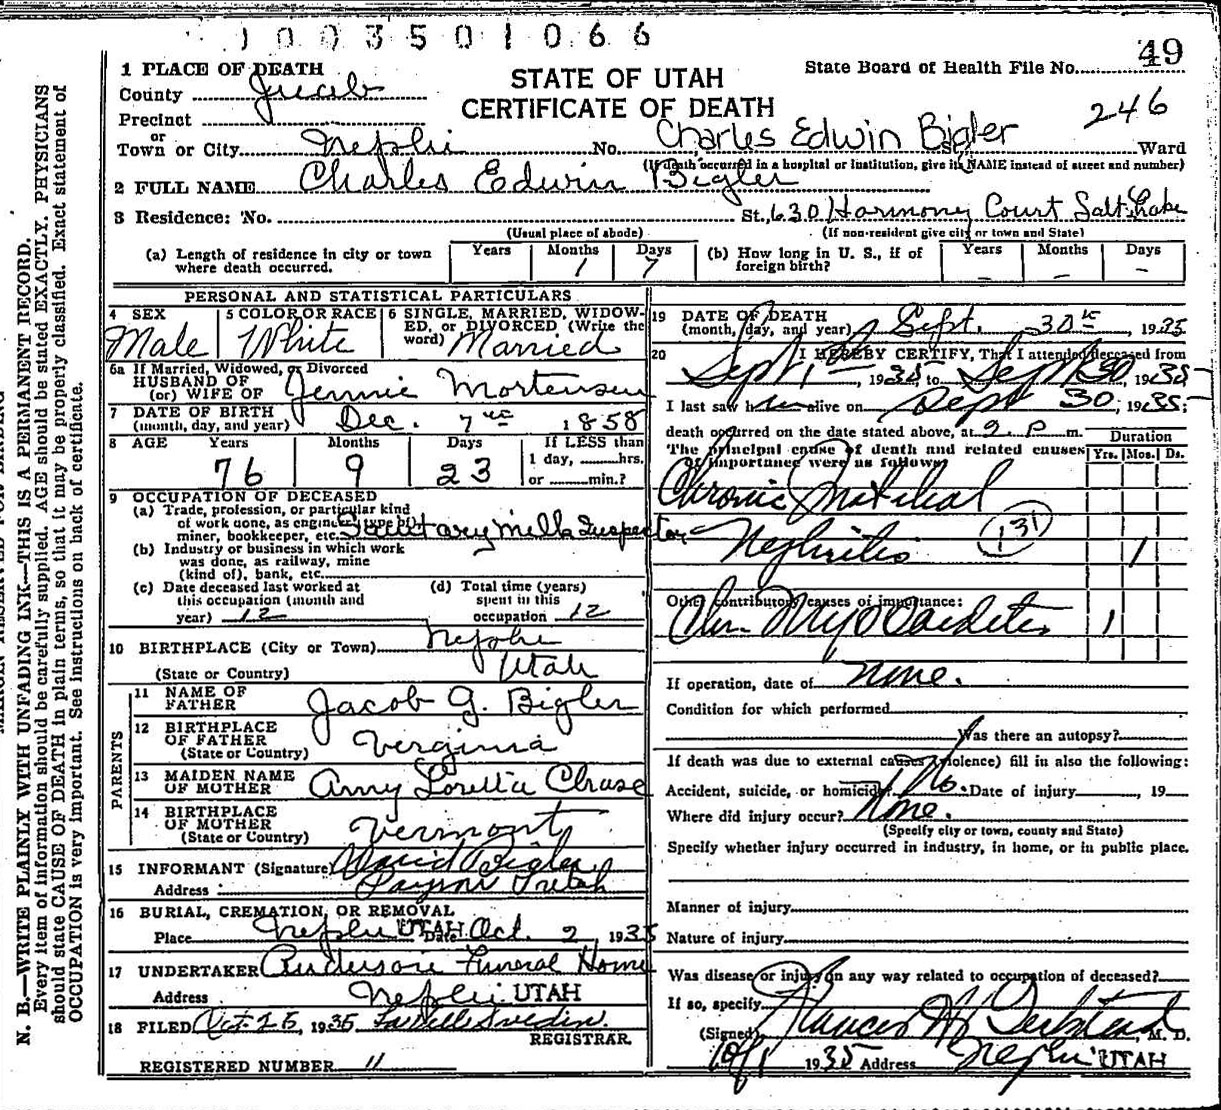 1003501066
49
1 PLACE OF DEATH
STATE OF UTAH
State Board of Health File No.
County Juab
CERTIFICATE OF DEATH
246
Precinct
or
Town or City Nephi No. Charles Edwin Bigler Ward
(If death occurred in a hospital or institution, give its NAME instead of street and number)
2 FULL NAME Charles Edwin Bigler
3 Residence: No. St., 630 Harmony Court Salt Lake
(Usual place of abode) (If non-resident give city or town and State)
(a) Length of residence in city or town where death occurred. Years Months 1 Days 7 (b) How long in U. S., if of foreign birth? Years – Months – Days –
PERSONAL AND STATISTICAL PARTICULARS
4 SEX Male
5 COLOR OR RACE White
6 SINGLE, MARRIED, WIDOWED, or DIVORCED (Write the word) Married
6a If Married, Widowed, or Divorced
HUSBAND OF
(or) WIFE OF Jennie Mortensen
7 DATE OF BIRTH
(month, day, and year) Dec. 7th 1858
8 AGE Years 76 Months 9 Days 23 If LESS than
1 day, hrs.
or min.?
9 OCCUPATION OF DECEASED
(a) Trade, profession, or particular kind
of work done, as engineer, type of
miner, bookkeeper, etc. Sanitary Milk Inspector
(b) Industry or business in which work
was done, as railway, mine
(kind of), bank, etc.
(c) Date deceased last worked at
this occupation (month and
year) 12
(d) Total time (years)
spent in this
occupation 12
10 BIRTHPLACE (City or Town) Nephi
(State or Country) Utah
PARENTS
11 NAME OF
FATHER Jacob G. Bigler
12 BIRTHPLACE
OF FATHER
(State or Country) Verginia
13 MAIDEN NAME
OF MOTHER Amy Loretta Chase
14 BIRTHPLACE
OF MOTHER
(State or Country) Vermont
15 INFORMANT (Signature) David Bigler
Address Payson Utah
16 BURIAL, CREMATION, OR REMOVAL
Place Nephi UTAH Date Oct. 2, 1935
17 UNDERTAKER Anderson Funeral Home
Address Nephi UTAH
18 FILED Oct 25, 1935
REGISTRAR.
REGISTERED NUMBER 11
19 DATE OF DEATH
(month, day, and year) Sept. 30th, 1935
20 I HEREBY CERTIFY, That I attended deceased from
Sept 1st, 1935 to Sept 30, 1935
I last saw him alive on Sept 30, 1935;
death occurred on the date stated above, at 9. P. m.
The principal cause of death and related causes
of importance were as follows
Duration
Yrs. Mos. Ds.
Chronic
Nephritis 131 1
Other contributory causes of importance:
Chr. Myocarditis 1
If operation, date of none.
Condition for which performed
Was there an autopsy?
If death was due to external causes (violence) fill in also the following:
Accident, suicide, or homicide No. Date of injury , 19
Where did injury occur? None.
(Specify city or town, county and State)
Specify whether injury occurred in industry, in home, or in public place.
Manner of injury
Nature of injury
Was disease or injury on any way related to occupation of deceased?
If so, specify
(Signed) , M. D.
10/1 1935 Address Nephi UTAH
N. B.—WRITE PLAINLY WITH UNFADING INK—THIS IS A PERMANENT RECORD.
Every item of information should be carefully supplied. AGE should be stated EXACTLY. PHYSICIANS
should state CAUSE OF DEATH in plain terms, so that it may be properly classified. Exact statement of
OCCUPATION is very important. See instructions on back of certificate.